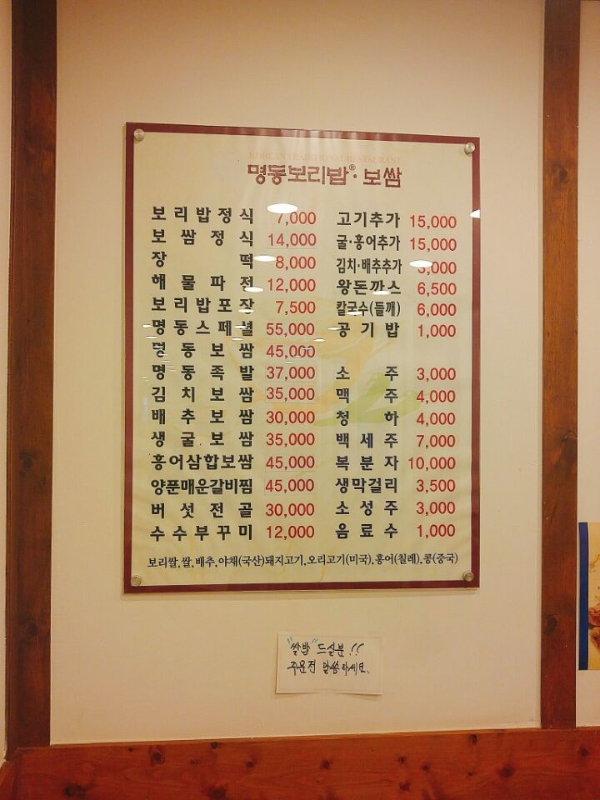 KOREAN TRADITIONAL RESTAURANT
명동보리밥®·보쌈
보리밥정식 7,000
보쌈정식 14,000
장떡 8,000
해물파전 12,000
보리밥포장 7,500
명동스페셜 55,000
명동보쌈 45,000
명동족발 37,000
김치보쌈 35,000
배추보쌈 30,000
생굴보쌈 35,000
홍어삼합보쌈 45,000
양푼매운갈비찜 45,000
버섯전골 30,000
수수부꾸미 12,000
고기추가 15,000
굴·홍어추가 15,000
김치·배추추가
왕돈까스 6,500
칼국수(들깨) 6,000
공기밥 1,000
소주 3,000
맥주 4,000
청하 4,000
백세주 7,000
복분자 10,000
생막걸리 3,500
소성주 3,000
음료수 1,000
보리쌀,쌀,배추,야채(국산)돼지고기,오리고기(미국),홍어(칠레),콩(중국)
"쌀밥" 드실분!!
주문전 말씀하세요.